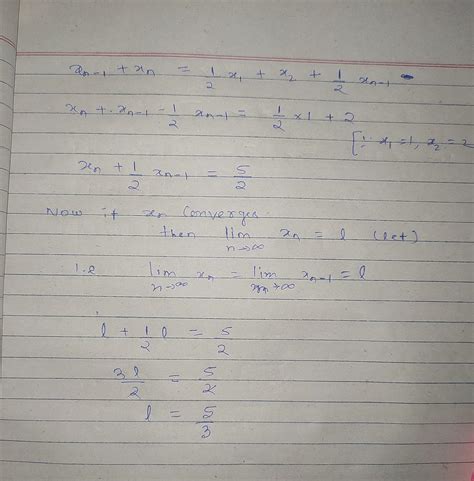 x_{n-1} + x_n = 1/2 x_1 + x_2 + 1/2 x_{n-1}
x_n + x_{n-1} - 1/2 x_{n-1} = 1/2 × 1 + 2
[∵ x_1 = 1, x_2 = 2
x_n + 1/2 x_{n-1} = 5/2
Now if x_n converges
then lim_{n→∞} x_n = l (let)
i.e lim_{n→∞} x_n = lim_{n→∞} x_{n-1} = l
l + 1/2 l = 5/2
3l/2 = 5/2
l = 5/3